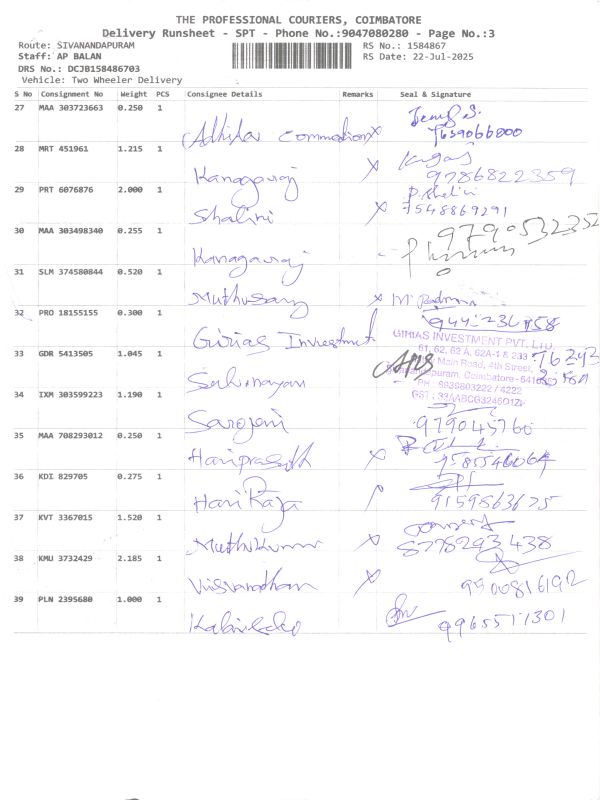 THE PROFESSIONAL COURIERS, COIMBATORE
Delivery Runsheet - SPT - Phone No.:9047080280 - Page No.:3
Route: SIVANANDAPURAM RS No.: 1584867
Staff: AP BALAN RS Date: 22-Jul-2025
DRS No.: DCJB158486703
Vehicle: Two Wheeler Delivery
S No Consignment No Weight PCS Consignee Details Remarks Seal & Signature
27 MAA 303723663 0.250 1
7639066000
28 MRT 451961 1.215 1
Kanagaraj 9786822359
29 PRT 6076876 2.000 1
Shalini x 7548869291
30 MAA 303498340 0.255 1
Kanagaraj
31 SLM 374580844 0.520 1
Muthusamy x
32 PRO 18155155 0.300 1
Girias Investment
33 GDR 5413505 1.045 1
GIRIAS INVESTMENT PVT. LTD.
61, 62, 62 A, 62A-1 & 233
Main Road, 4th Street,
Coimbatore
PH : 9939803222 / 4222
34 IXM 303599223 1.190 1
Sarojani
35 MAA 708293012 0.250 1
Hariprasath x
36 KDI 829705 0.275 1
Hari Raja 9159863675
37 KVT 3367015 1.520 1
Muthukumar x 8778293438
38 KMU 3732429 2.185 1
Viswanathan x 9500816192
39 PLN 2395680 1.000 1
9965511301